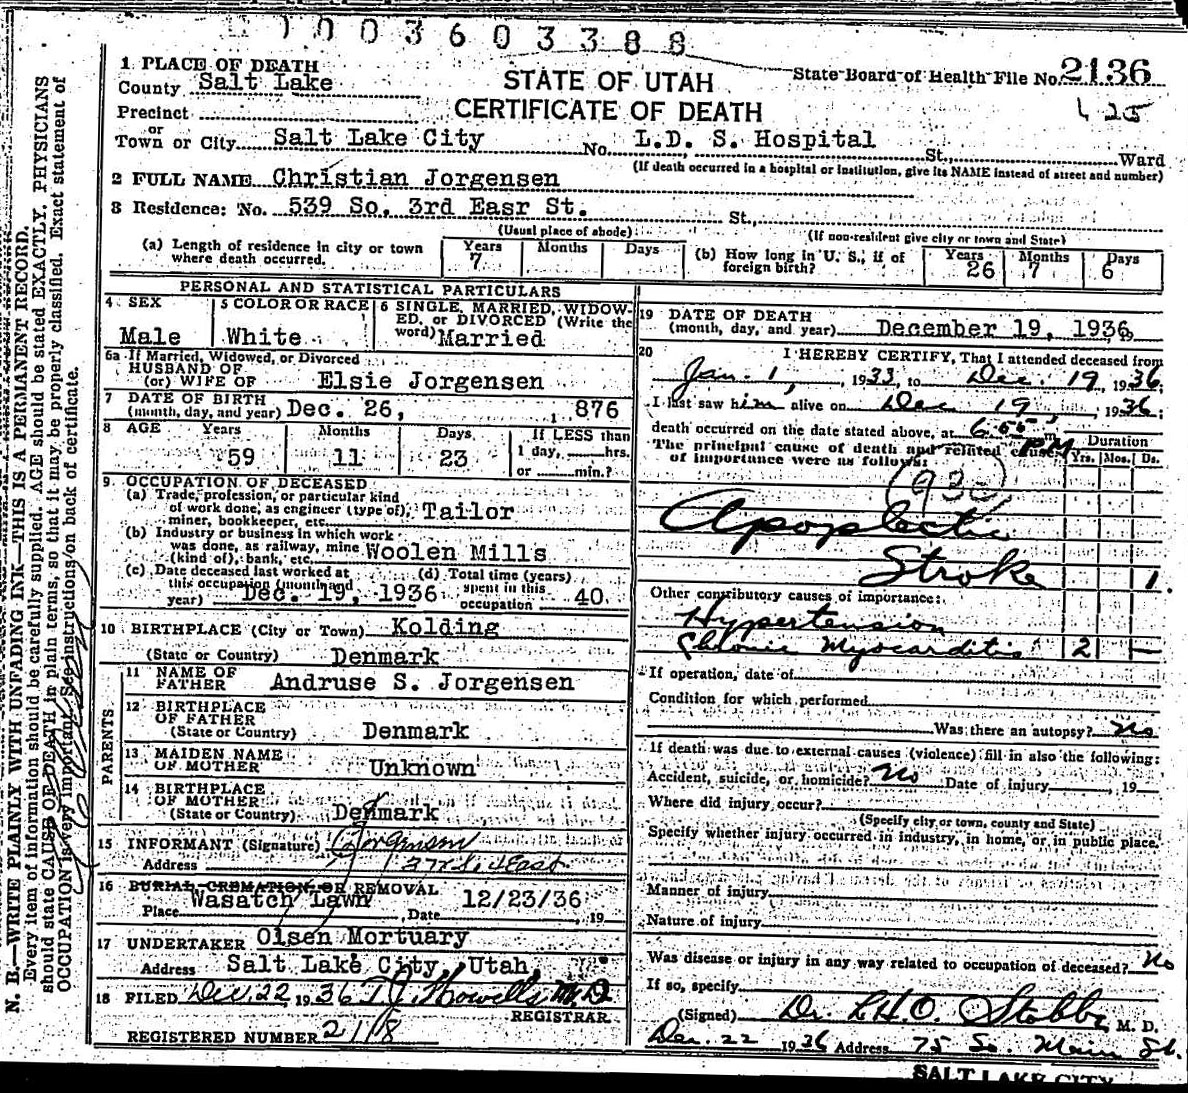 1003603388
1 PLACE OF DEATH
County Salt Lake
STATE OF UTAH
CERTIFICATE OF DEATH
State Board of Health File No. 2136
125
Precinct
or
Town or City Salt Lake City No. L.D. S. Hospital St., Ward
(If death occurred in a hospital or institution, give its NAME instead of street and number)
2 FULL NAME Christian Jorgensen
3 Residence: No. 539 So. 3rd Easr St. St.,
(Usual place of abode) (If non-resident give city or town and State)
(a) Length of residence in city or town where death occurred. Years 7 Months Days
(b) How long in U. S., if of foreign birth? Years 26 Months 7 Days 6
PERSONAL AND STATISTICAL PARTICULARS
4 SEX Male
5 COLOR OR RACE White
6 SINGLE, MARRIED, WIDOW-
ED, or DIVORCED (Write the
word) Married
6a If Married, Widowed, or Divorced
HUSBAND OF
(or) WIFE OF Elsie Jorgensen
7 DATE OF BIRTH
(month, day, and year) Dec. 26, 1876
8 AGE Years 59 Months 11 Days 23 If LESS than
1 day, hrs.
or min.?
9. OCCUPATION OF DECEASED
(a) Trade, profession, or particular kind
of work done, as engineer (type of),
miner, bookkeeper, etc. Tailor
(b) Industry or business in which work
was done, as railway, mine
(kind of), bank, etc. Woolen Mills
(c) Date deceased last worked at
this occupation (month and
year) Dec. 19, 1936
(d) Total time (years)
spent in this
occupation 40
10 BIRTHPLACE (City or Town) Kolding
(State or Country) Denmark
PARENTS
11 NAME OF
FATHER Andruse S. Jorgensen
12 BIRTHPLACE
OF FATHER
(State or Country) Denmark
13 MAIDEN NAME
OF MOTHER Unknown
14 BIRTHPLACE
OF MOTHER
(State or Country) Denmark
15 INFORMANT (Signature) Jorgensen
Address East
16 BURIAL CREMATION, OR REMOVAL
Place Wasatch Lawn, Date 12/23/36, 19
17 UNDERTAKER Olsen Mortuary
Address Salt Lake City, Utah,
18 FILED Dec. 22 1936 T J Howells M.D.
REGISTRAR
REGISTERED NUMBER 2118
19 DATE OF DEATH
(month, day, and year) December 19, 1936, 19
20 I HEREBY CERTIFY, That I attended deceased from
Jan. 1, 1933, to Dec. 19, 1936;
I last saw him alive on Dec 19, 1936;
death occurred on the date stated above, at 6 55 PM
The principal cause of death and related causes
of importance were as follows:
Duration
Yrs. Mos. Ds.
Apoplectic
Stroke 1.
Other contributory causes of importance:
Hypertension
Chronic Myocarditis 2 —
If operation, date of
Condition for which performed
Was there an autopsy? No
If death was due to external causes (violence) fill in also the following:
Accident, suicide, or homicide? No Date of injury, 19
Where did injury occur?
(Specify city or town, county and State)
Specify whether injury occurred in industry, in home, or in public place.
Manner of injury
Nature of injury
Was disease or injury in any way related to occupation of deceased? No
If so, specify
(Signed) Dr. L.H.O. Stobbe, M. D.
Dec. 22 1936 Address 75 So. Main St.
SALT LAKE CITY
N. B.—WRITE PLAINLY WITH UNFADING INK—THIS IS A PERMANENT RECORD.
Every item of information should be carefully supplied. AGE should be stated EXACTLY. PHYSICIANS
should state CAUSE OF DEATH in plain terms, so that it may be properly classified. Exact statement of
OCCUPATION is very important. See instructions on back of certificate.